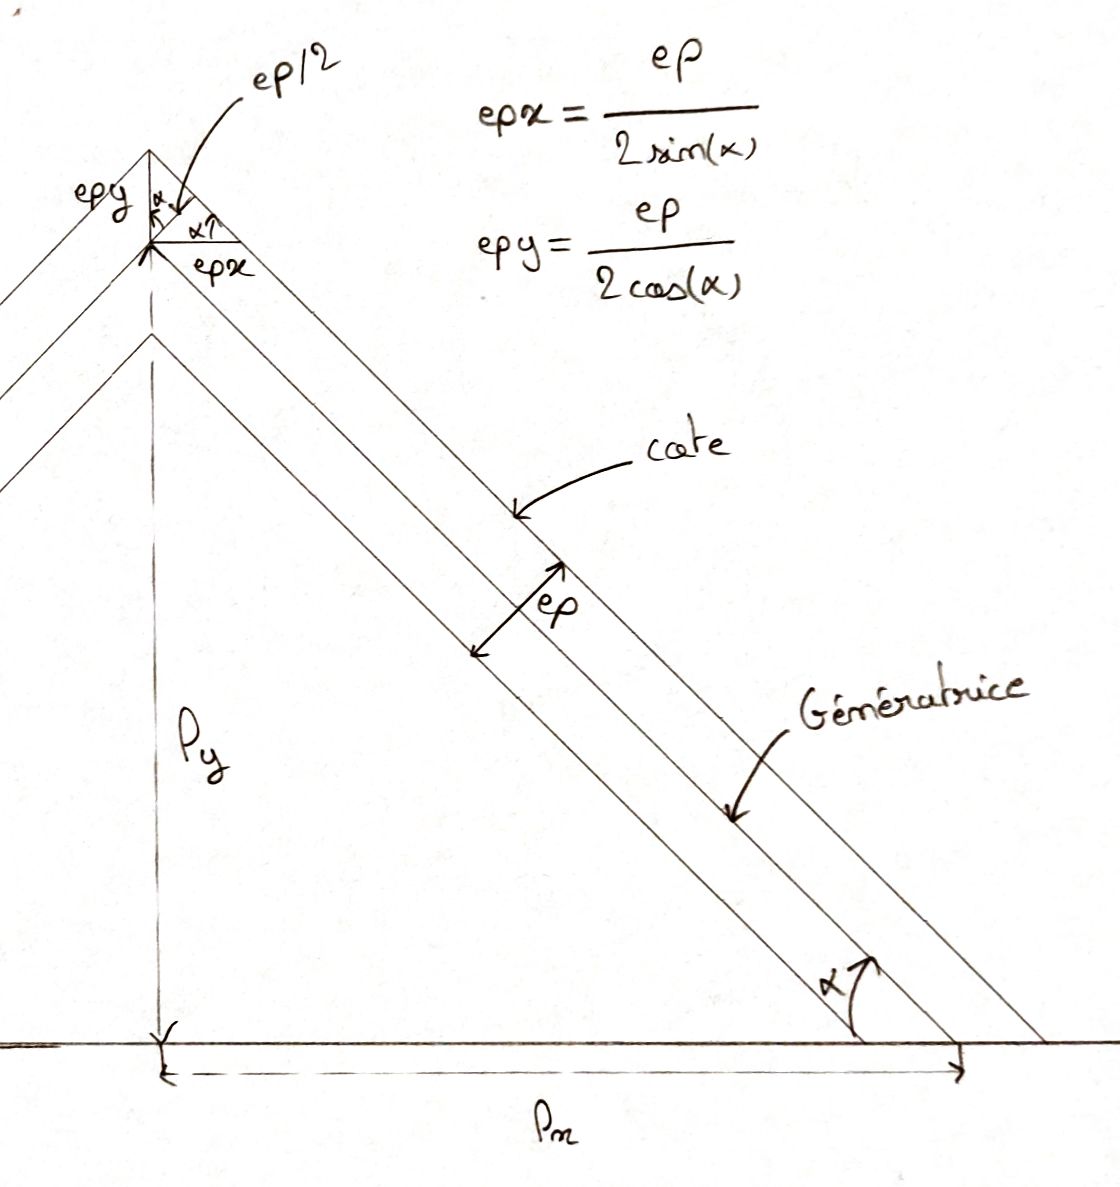 ep/2
epx = ep / 2 sin(α)
epy = ep / 2 cos(α)
epy
α
α
epx
cote
ep
Génératrice
Py
α
Px